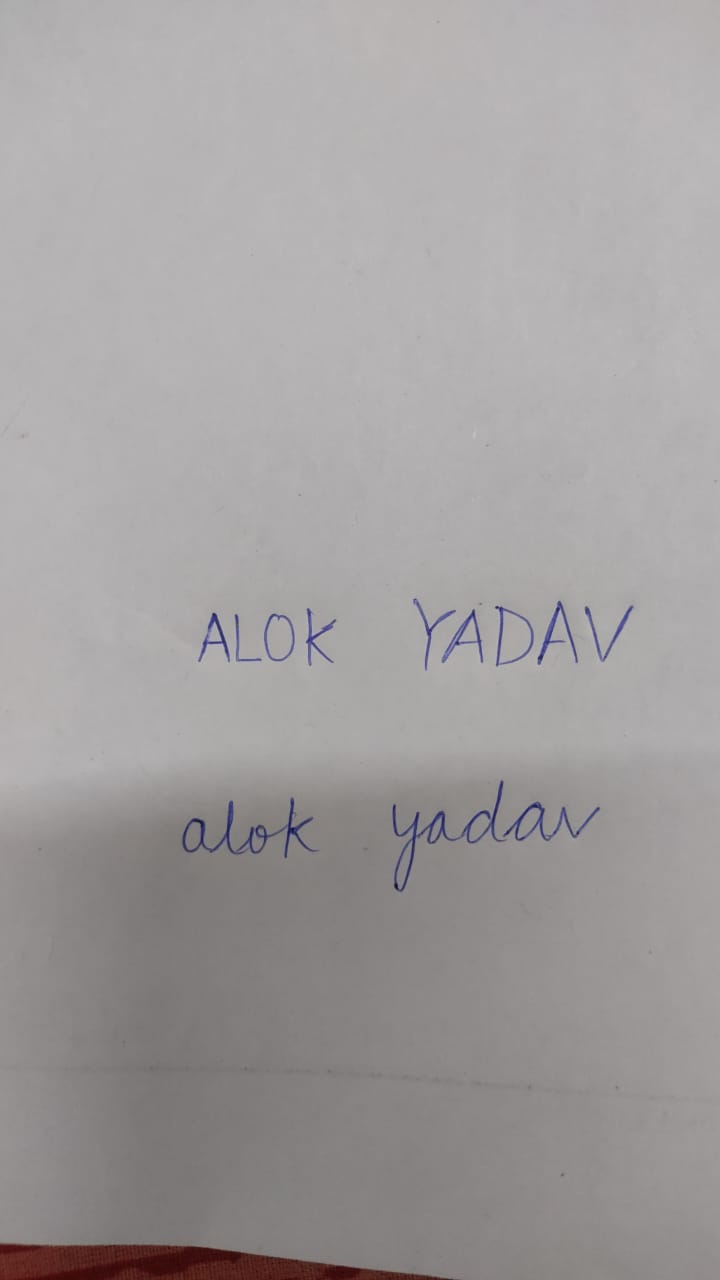 ALOK YADAV
alok yadav